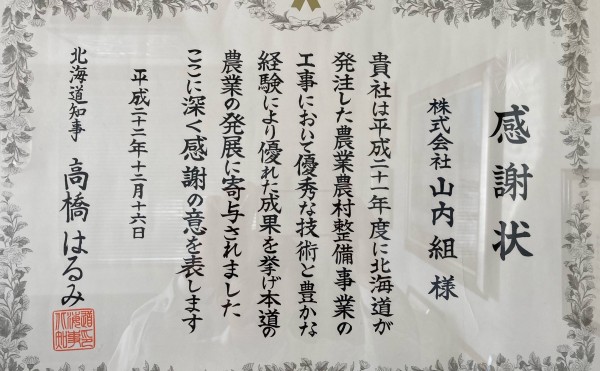 感謝状
株式会社 山内組 様
貴社は平成二十一年度に北海道が
発注した農業農村整備事業の
工事において優秀な技術と豊かな
経験により優れた成果を挙げ本道の
農業の発展に寄与されました
ここに深く感謝の意を表します
平成二十二年十二月十六日
北海道知事 高橋はるみ